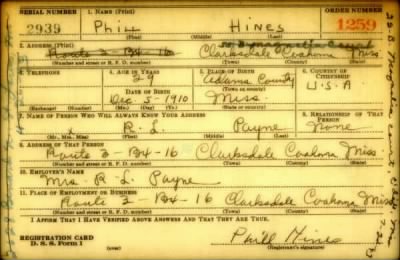 SERIAL NUMBER 1. NAME (Print) ORDER NUMBER
2939 Phill Hines 1259
(First) (Middle) (Last)
2. ADDRESS (Print)
Route 3 - B4 - 16 Clarksdale Coahoma Miss
(Number and street or R. F. D. number) (Town) (County) (State)
3. TELEPHONE 4. AGE IN YEARS 5. PLACE OF BIRTH 6. COUNTRY OF CITIZENSHIP
29 Adams County
DATE OF BIRTH (Town or county) U.S.A
Dec 5 - 1910 Miss.
(Exchange) (Number) (Mo.) (Day) (Yr.) (State or country)
7. NAME OF PERSON WHO WILL ALWAYS KNOW YOUR ADDRESS 8. RELATIONSHIP OF THAT PERSON
R. L. Payne None
(Mr., Mrs., Miss) (First) (Middle) (Last)
9. ADDRESS OF THAT PERSON
Route 3 - B4 - 16 Clarksdale Coahoma Miss
(Number and street or R. F. D. number) (Town) (County) (State)
10. EMPLOYER'S NAME
Mrs. R L. Payne
11. PLACE OF EMPLOYMENT OR BUSINESS
Route 3 B4 - 16 Clarksdale Coahoma Miss
(Number and street or R. F. D. number) (Town) (County) (State)
I AFFIRM THAT I HAVE VERIFIED ABOVE ANSWERS AND THAT THEY ARE TRUE.
REGISTRATION CARD
D. S. S. Form 1 (over) Phill Hines
(Registrant's signature)